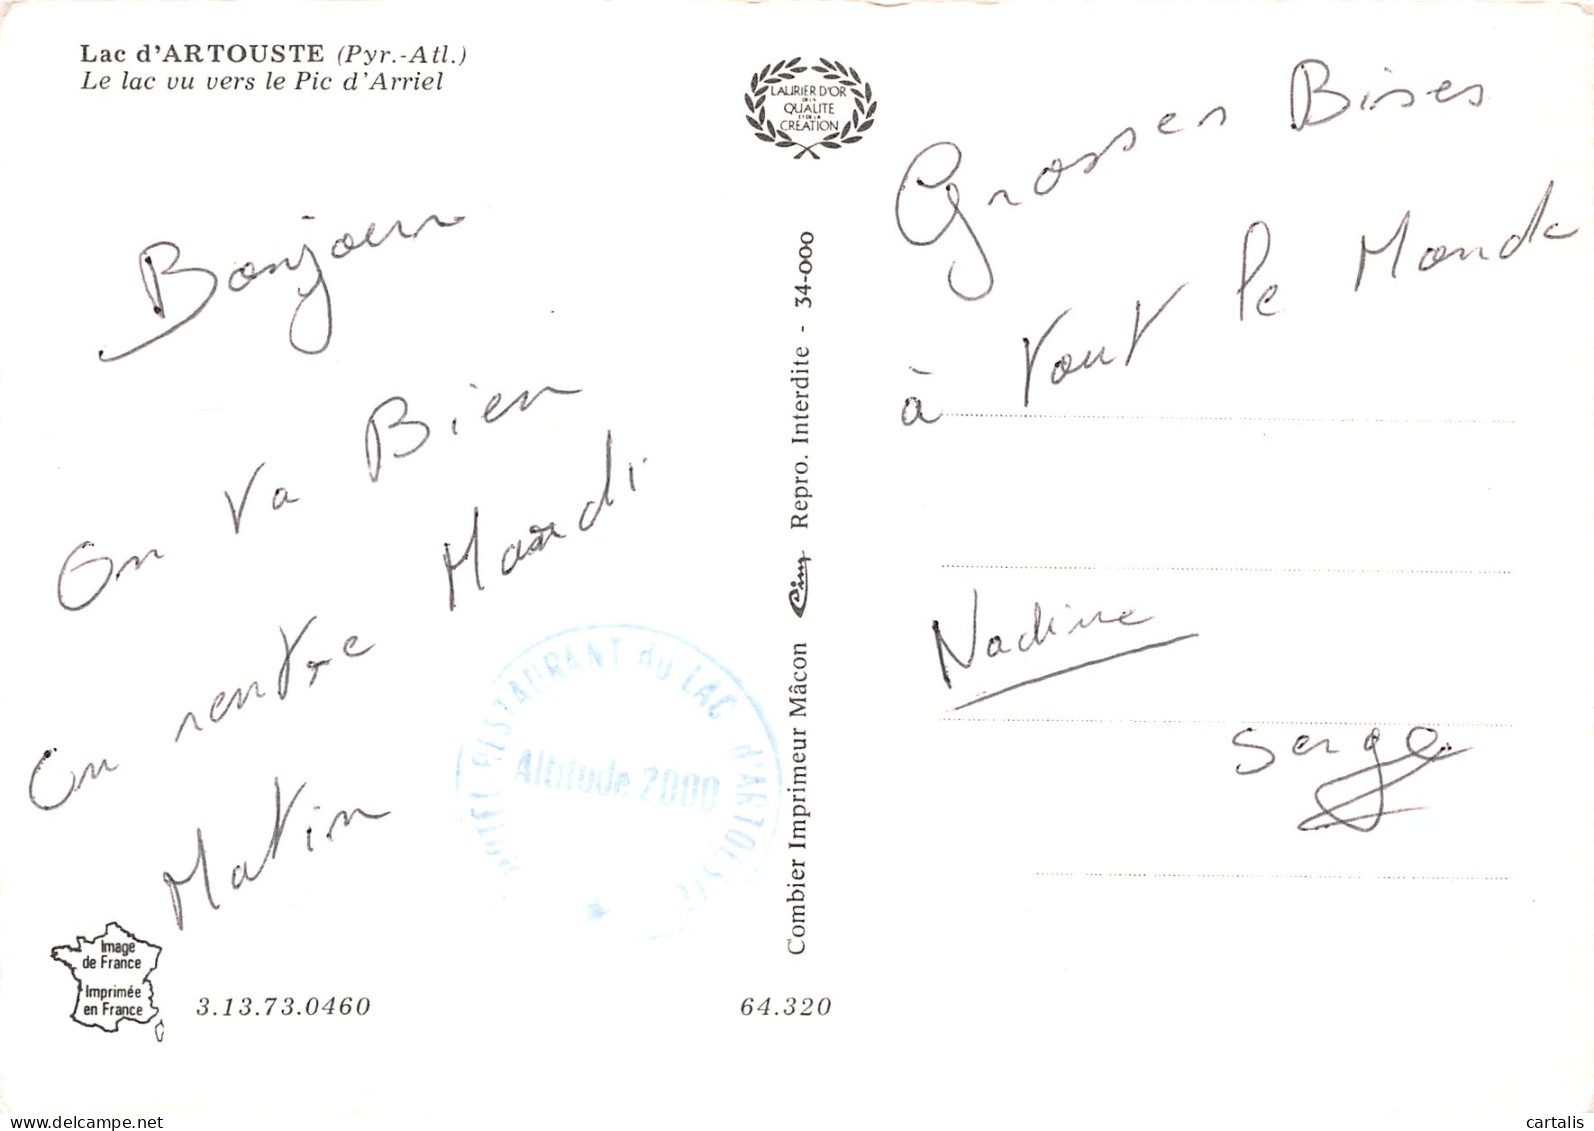 Lac d'ARTOUSTE (Pyr.-Atl.)
Le lac vu vers le Pic d'Arriel
LAURIER D'OR
DE LA
QUALITE
ET DE LA
CREATION
Bonjour
On va Bien
On rentre Mardi
Matin
Grosses Bises
à tout le Monde
Nadine
Serge
HOTEL RESTAURANT du LAC d'ARTOUSTE
Altitude 2000
Combier Imprimeur Mâcon Cim Repro. Interdite - 34-000
Image
de France
Imprimée
en France
3.13.73.0460
64.320
cartalis